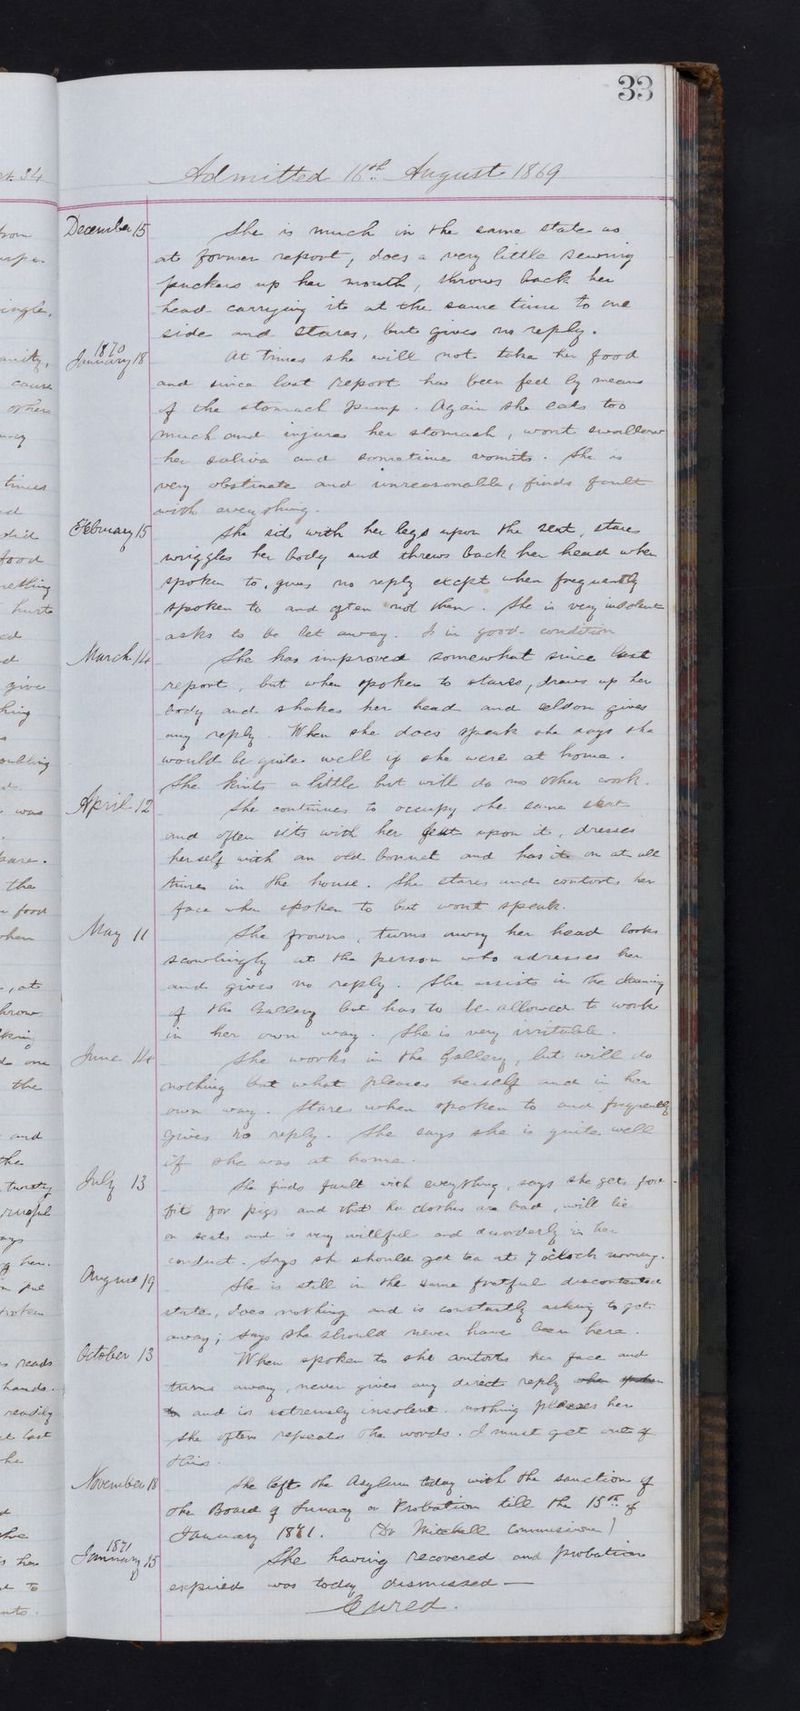 33
Admitted 16th August 1869
December 15 She is much in the same state as
at former report, does a very little sewing
puckers up her mouth, throws back her
head carrying it at the same time to one
side and stares, but gives no reply.
1870
January 18 At times she will not take her food
and since last report has been fed by means
of the stomach pump. Again she eats too
much and injures her stomach, wont swallow
her saliva and sometime vomits. She is
very obstinate and unreasonable, finds fault
with everything.
February 15 She sits with her legs upon the seat, stares
wriggles her body and throws back her head when
spoken to, gives no reply except when frequently
spoken to and often not then. She is very indolent
asks to be let away. Is in good condition
March 14 She has improved somewhat since last
report, but when spoken to stares, draws up her
body and shakes her head and seldom gives
any reply. When she does speak she says she
would be quite well if she were at home.
She knits a little but will do no other work.
April 12 She continues to occupy the same seat
and often sits with her feet upon it, dresses
herself with an old bonnet and has it on at all
times in the house. She stares and contorts her
face when spoken to but wont speak.
May 11 She frowns, turns away her head looks
scowlingly at the person who adresses her
and gives no reply. She assists in the cleaning
of the Gallery but has to be allowed to work
in her own way. She is very irritable.
June 14 She works in the Gallery, but will do
nothing but what pleases herself and in her
own way. Stares when spoken to and frequently
gives no reply. She says she is quite well
if she was at home.
July 13 She finds fault with everything, says she gets food
fit for pigs and that her clothes are bad, will lie
on seats and is very willful and disorderly in her
conduct. Says she should get tea at 7 oclock morning.
August 19 She is still in the same fretful discontented
state, does nothing and is constantly asking to get
away; says she should never have been here.
October 13 When spoken to she contorts her face and
turns away, never gives any direct reply when spoken
to and is extremely insolent. nothing pleases her
She often repeats the words. I must get out of
this.
November 18 She left the Asylum today with the sanction of
the Board of Lunacy on Probation till the 15th of
January 1871. (Dr Mitchell Commissioner)
1871
January 15 She having recovered and probation
expired was today dismissed —
Cured.